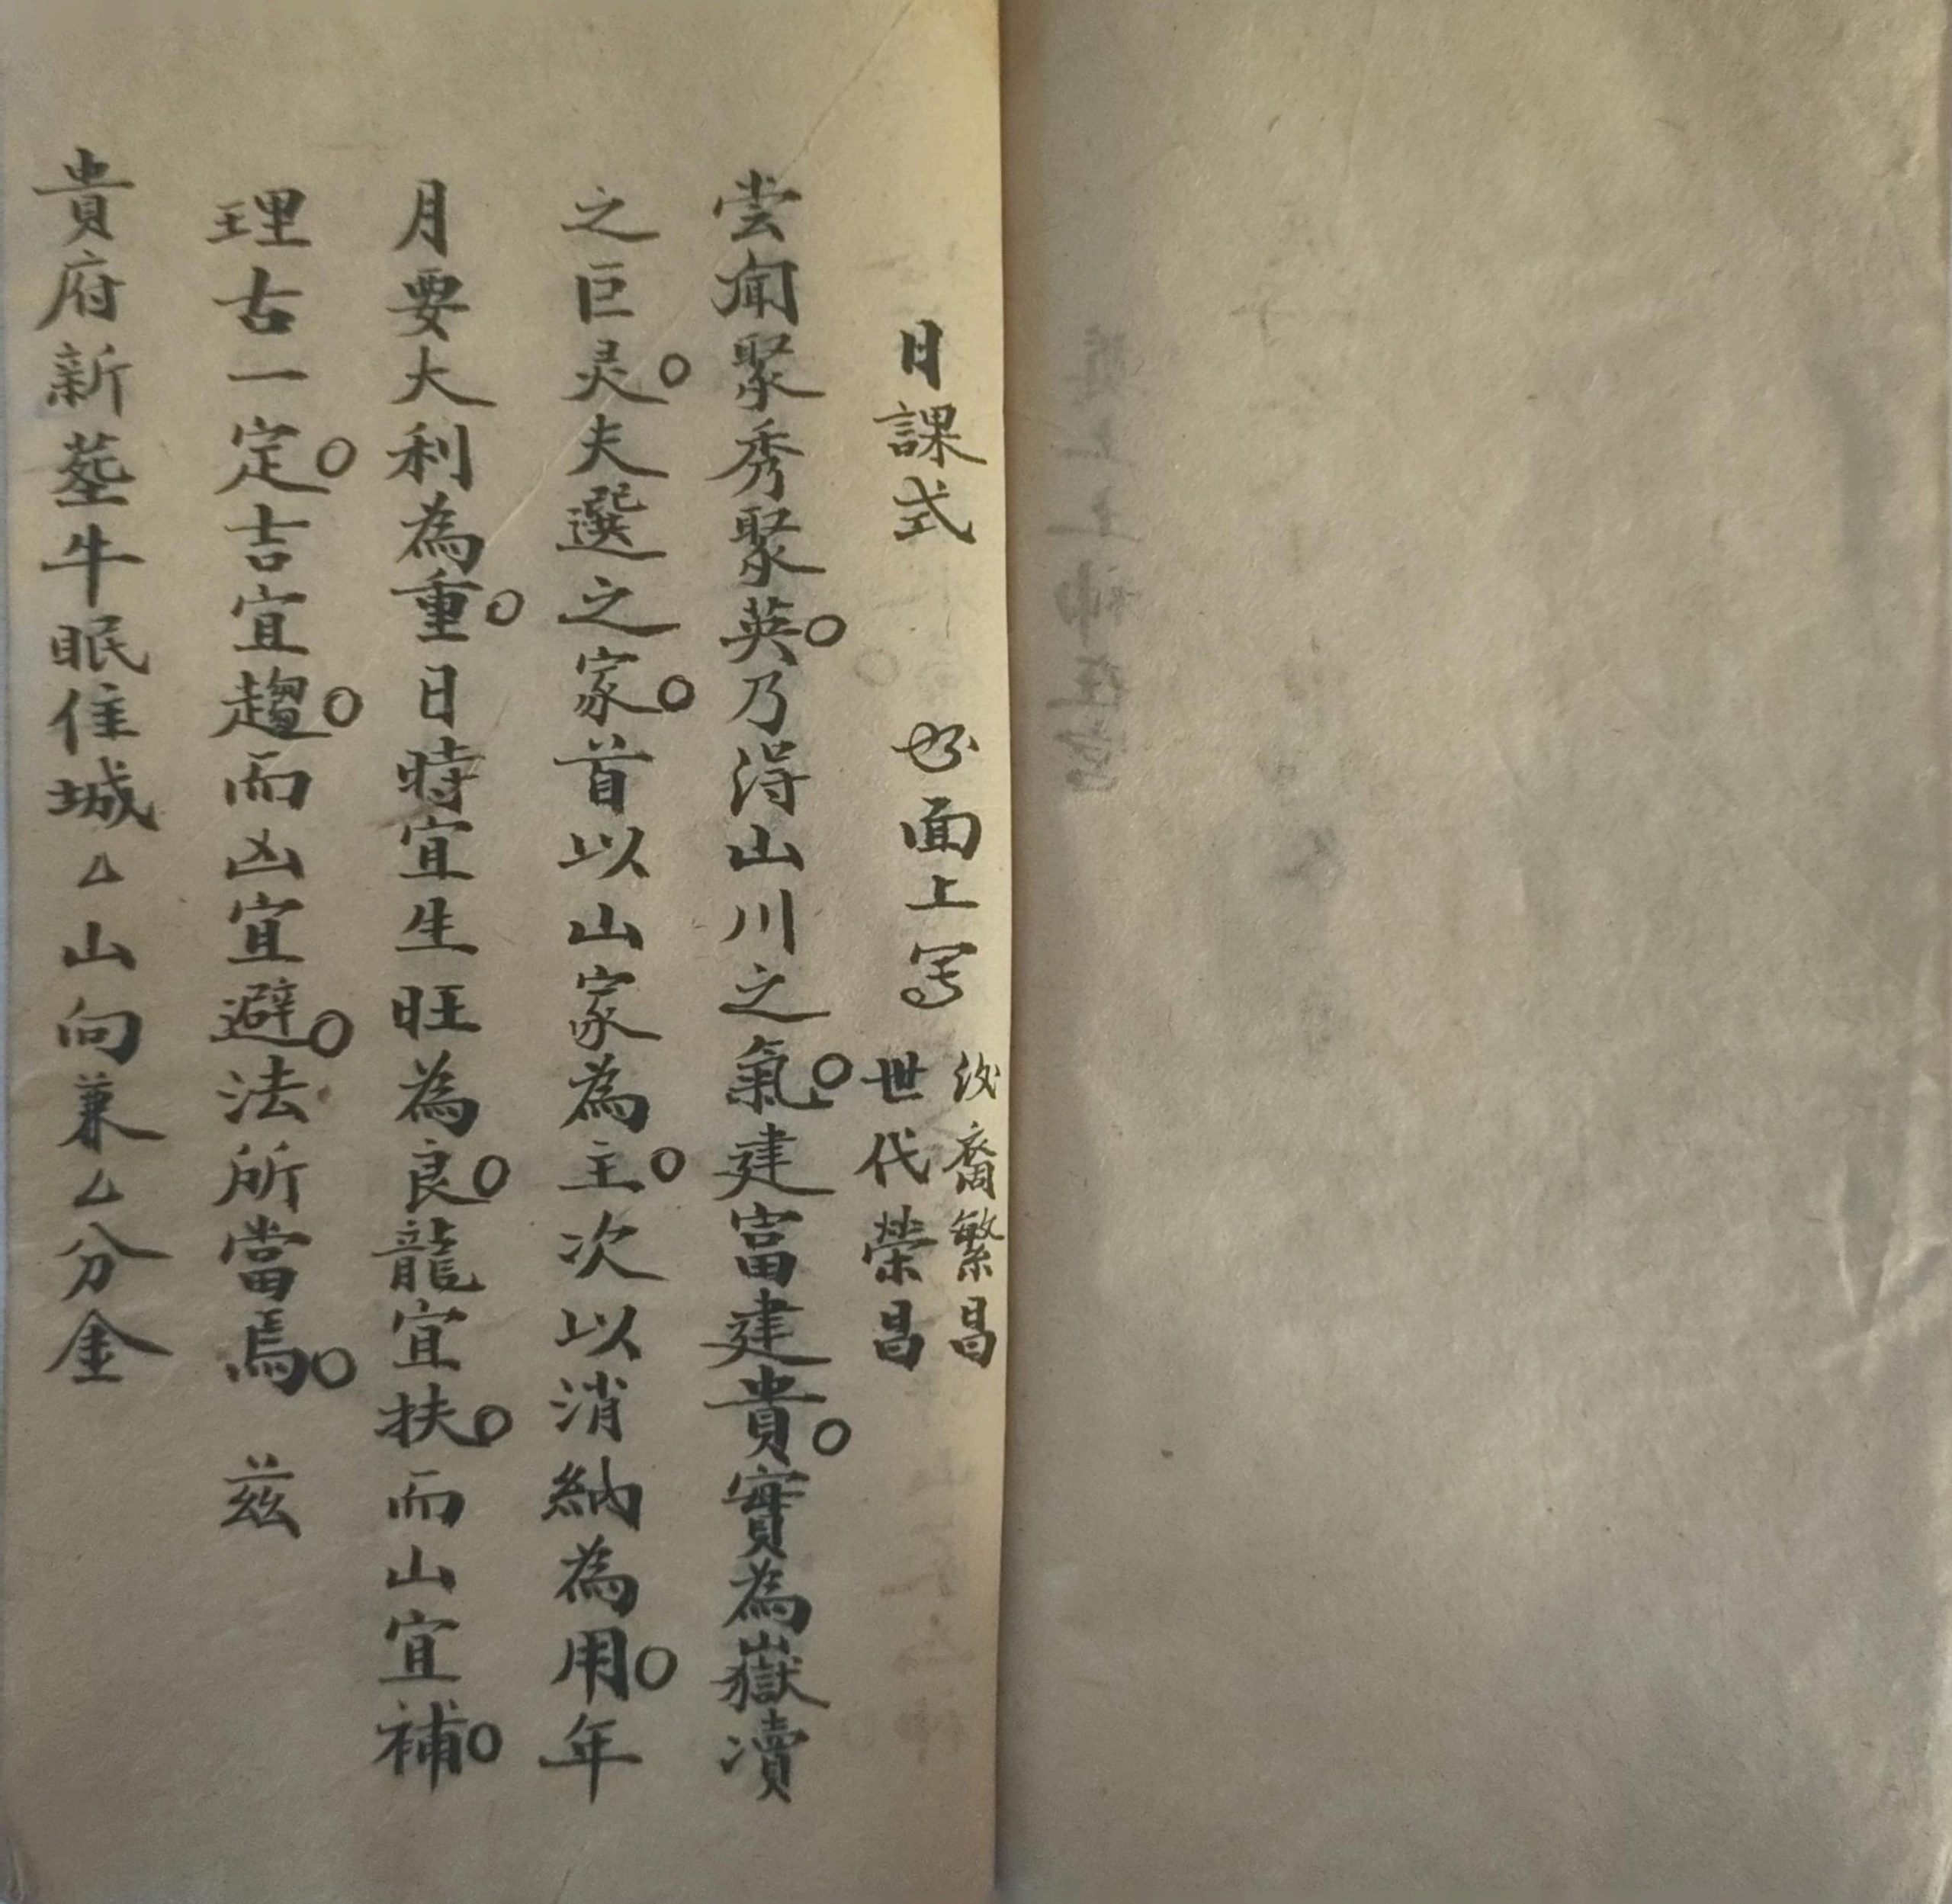 日課式 好面上写 後裔繁昌
世代榮昌
尝闻聚秀聚英。乃淂山川之氣。建富建貴。實為嶽瀆
之巨灵。夫選之家。首以山家為主。次以消納為用。年
月要大利為重。日時宜生旺為良。龍宜扶。而山宜補。
理古一定。吉宜趨。而凶宜避。法所當焉。 茲
貴府新塟牛眠佳城厶山向兼厶分金